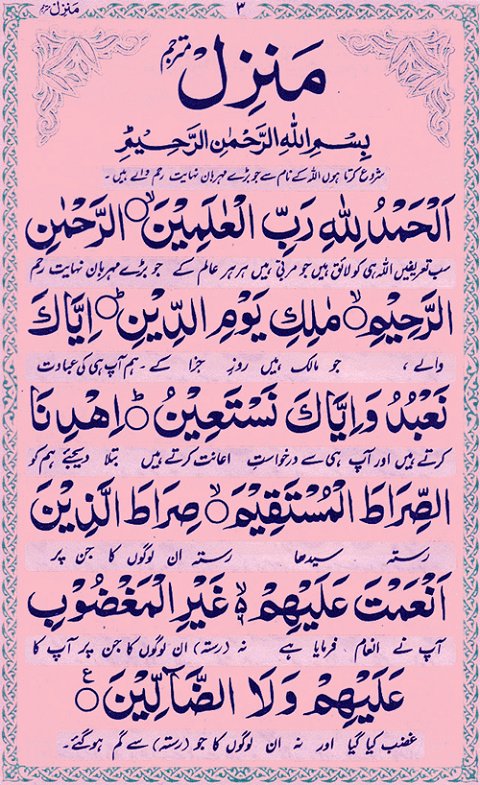 منزل ۳ منزل مترجم
منزل مترجم
بِسْمِ اللهِ الرَّحْمٰنِ الرَّحِیْمِ
شروع کرتا ہوں اللہ کے نام سے جو بڑے مہربان نہایت رحم والے ہیں۔
اَلْحَمْدُ لِلّٰهِ رَبِّ الْعٰلَمِیْنَ ۙ الرَّحْمٰنِ
سب تعریفیں اللہ ہی کو لائق ہیں جو مربی ہیں ہر ہر عالم کے جو بڑے مہربان نہایت رحم
الرَّحِیْمِ ۙ مٰلِكِ یَوْمِ الدِّیْنِ ؕ اِیَّاكَ
والے ، جو مالک ہیں روزِ جزا کے ۔ ہم آپ ہی کی عبادت
نَعْبُدُ وَاِیَّاكَ نَسْتَعِیْنُ ؕ اِهْدِنَا
کرتے ہیں اور آپ ہی سے درخواستِ اعانت کرتے ہیں بتلا دیجئے ہم کو
الصِّرَاطَ الْمُسْتَقِیْمَ ۙ صِرَاطَ الَّذِیْنَ
رستہ سیدھا رستہ ان لوگوں کا جن پر
اَنْعَمْتَ عَلَیْهِمْ ۙ۬ غَیْرِ الْمَغْضُوْبِ
آپ نے انعام فرمایا ہے نہ (رستہ) ان لوگوں کا جن پر آپ کا
عَلَیْهِمْ وَلَا الضَّآلِّیْنَ ۠
غضب کیا گیا اور نہ ان لوگوں کا جو (رستہ) سے گم ہوگئے۔